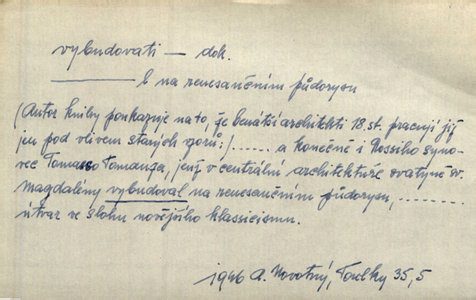 vybudovati — dok.
——— b na renesančním půdorysu
(Autor knihy poukazuje na to, že benátští architekti 18. st. pracují jen pod vlivem starých vzorů:) ...... a konečně i Rossiho syno-
vec Tomasso Temanza, jenž v centrální architektuře svatyně sv.
Magdalény vybudoval na renesančním půdorysu, .......
útvar ve slohu novějšího klasicismu.
1946 A. Novotný, Toulky 35, 5